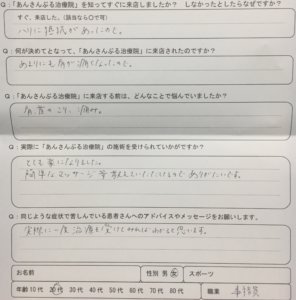 Q：「あんさんぶる治療院」を知ってすぐに来店しましたか？　しなかったとしたらなぜですか？
すぐ、来店した。（該当なら〇で可）
ハリに抵抗があったので。
Q：何が決めてとなって、「あんさんぶる治療院」に来店されたのですか？
あまりにも肩が痛くなったので。
Q：「あんさんぶる治療院」に来店する前は、どんなことで悩んでいましたか？
肩、首のこり、痛み。
Q：実際に「あんさんぶる治療院」の施術を受けられていかがですか？
とても楽になりました。
簡単なマッサージ等 教えていただけるので ありがたいです。
Q：同じような症状で苦しんでいる患者さんへのアドバイスやメッセージをお願いします。
実際に一度治療を受けてみればわかると思います。
お名前　性別 男 女　スポーツ
年齢 10代 20代 30代 40代 50代 60代 70代 80代　職業